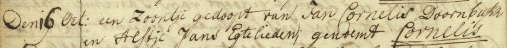 Den 6 Oct: een Zoontje gedoopt van Jan Cornelis Doornbusch
en Aeltje Jans Egtelieden, genoemt Cornelis